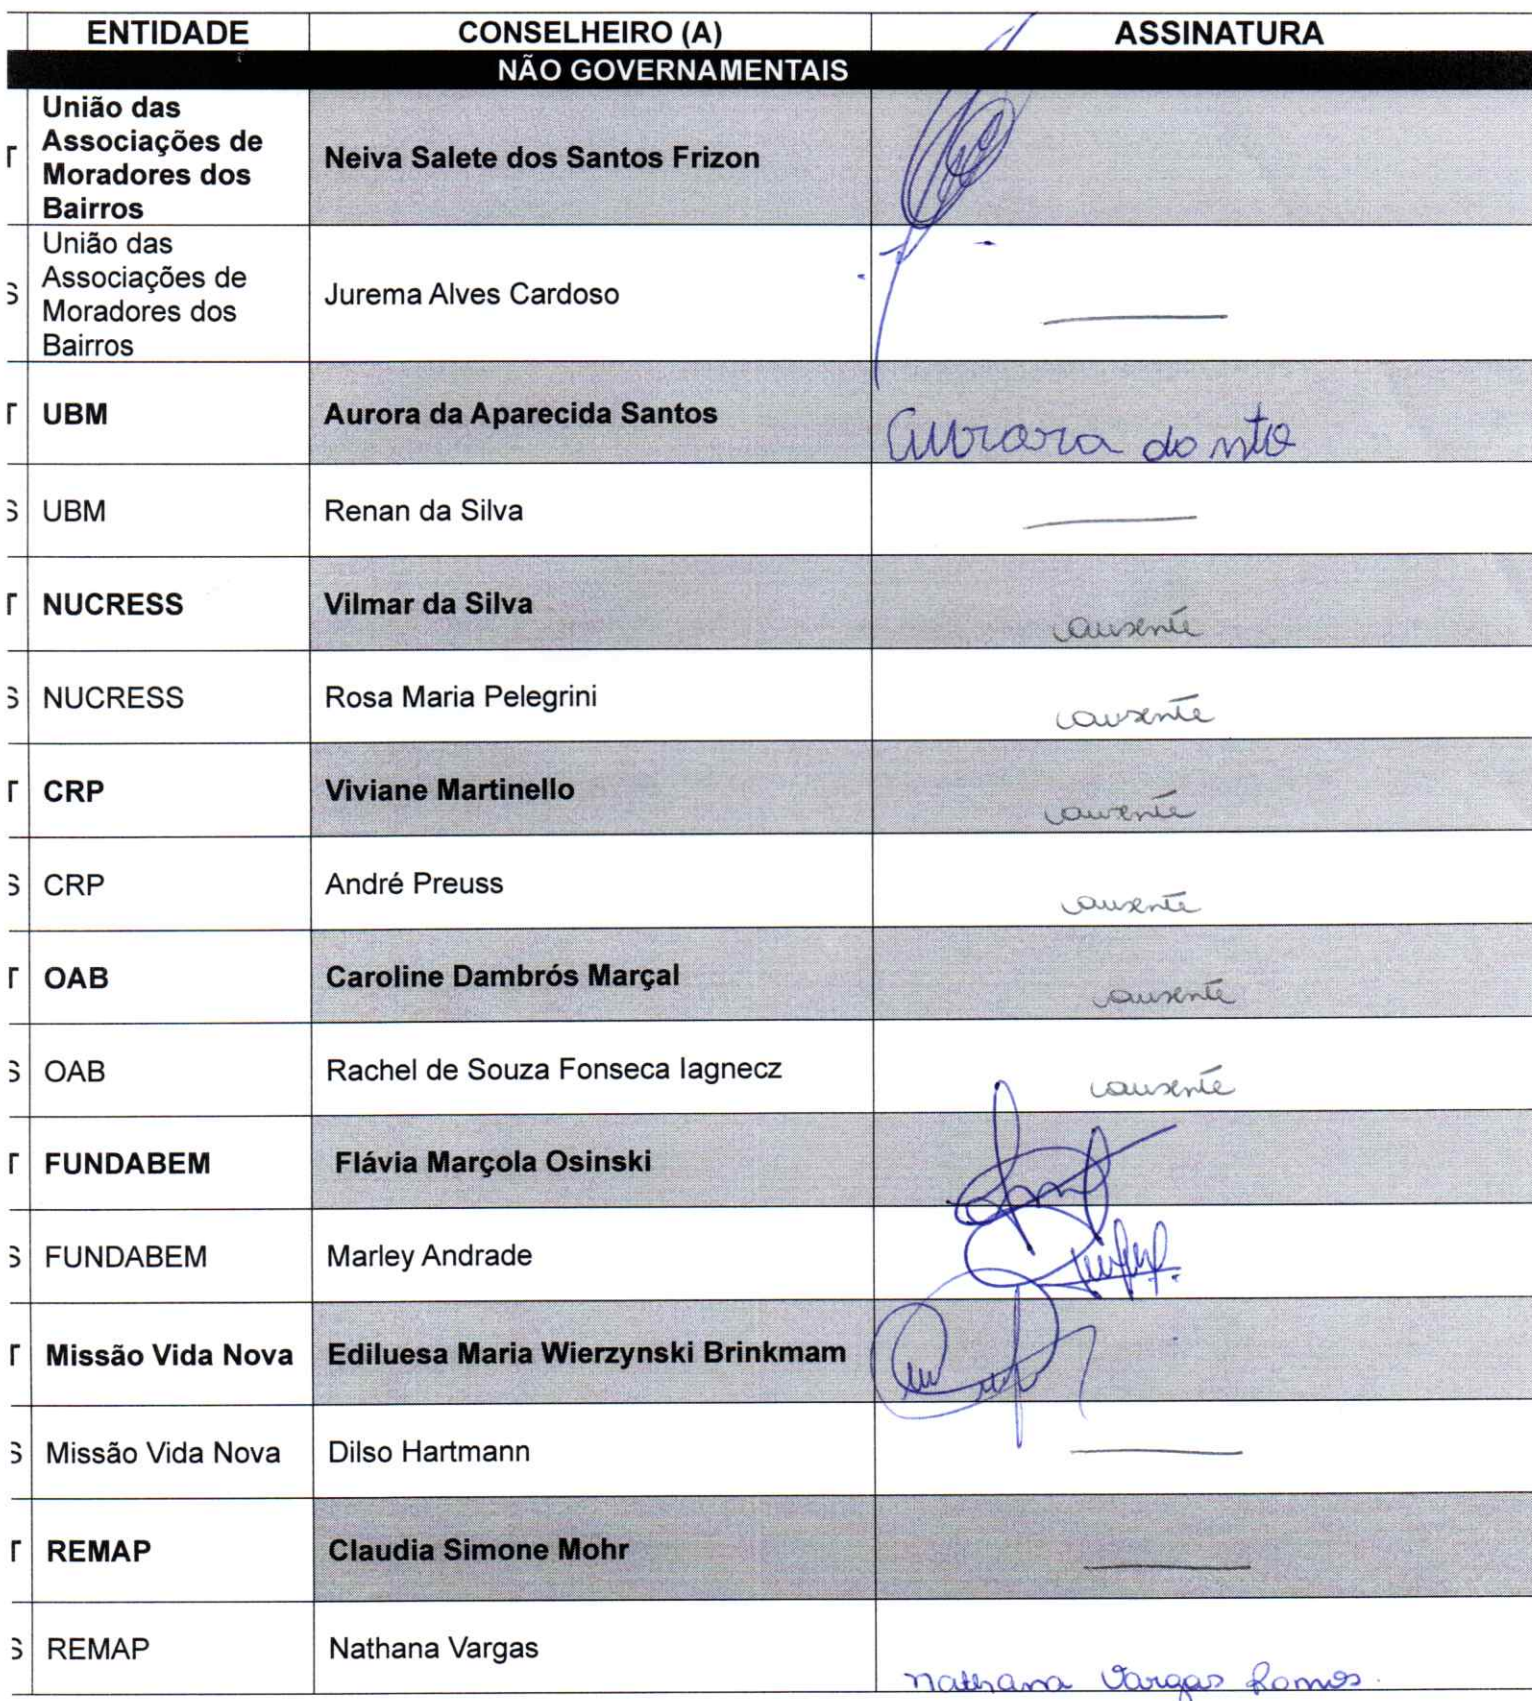 ENTIDADE CONSELHEIRO (A) ASSINATURA
NÃO GOVERNAMENTAIS
T União das Associações de Moradores dos Bairros Neiva Salete dos Santos Frizon
S União das Associações de Moradores dos Bairros Jurema Alves Cardoso
T UBM Aurora da Aparecida Santos Aurora do
S UBM Renan da Silva
T NUCRESS Vilmar da Silva ausente
S NUCRESS Rosa Maria Pelegrini ausente
T CRP Viviane Martinello ausente
S CRP André Preuss ausente
T OAB Caroline Dambrós Marçal ausente
S OAB Rachel de Souza Fonseca Iagnecz ausente
T FUNDABEM Flávia Marçola Osinski
S FUNDABEM Marley Andrade
T Missão Vida Nova Ediluesa Maria Wierzynski Brinkmam
S Missão Vida Nova Dilso Hartmann
T REMAP Claudia Simone Mohr
S REMAP Nathana Vargas Nathana Vargas Ramos.